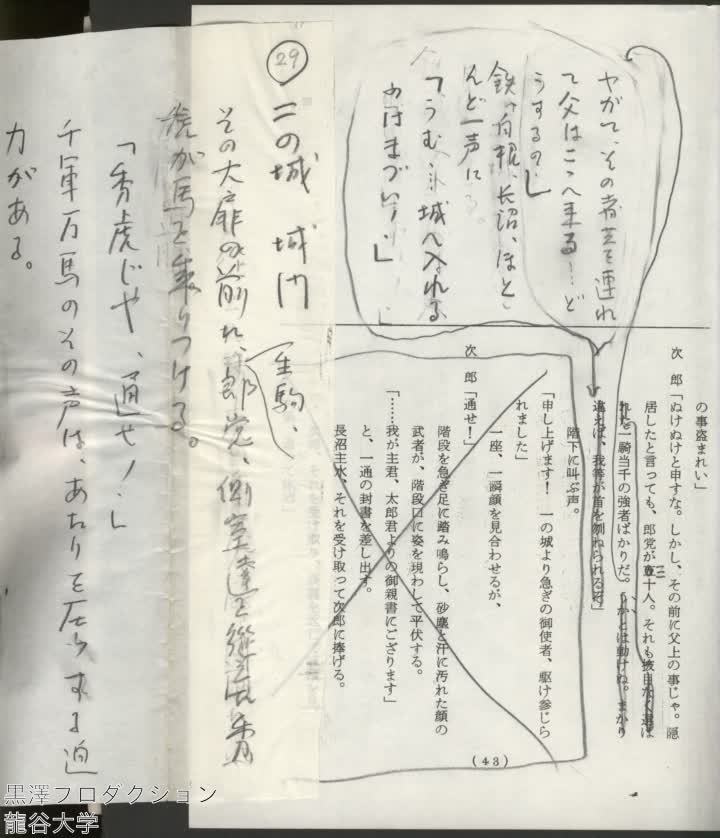 の事盗まれい」
次　郎「ぬけぬけと申すな。しかし、その前に父上の事じゃ。隠
居したと言っても、郎党が三十人。それも抜目なく選ば
れた一騎当千の強者ばかりだ。うかとは動けぬ。まかり
違えば、我等が首を刎ねられるぞ」
階下に叫ぶ声。
「申し上げます！　一の城より急ぎの御使者、駆け参じら
れました」
一座、一瞬顔を見合わせるが、
次　郎「通せ！」
階段を急ぎ足に踏み鳴らし、砂塵と汗に汚れた顔の
武者が、階段口に姿を現わして平伏する。
「……我が主君、太郎君よりの御親書にござります」
と、一通の封書を差し出す。
長沼主水、それを受け取って次郎に捧げる。
(43)
やがて、その者共を連れ
て父はこゝへ来る…ど
うするの」
鉄、白根、長沼、ほと
んど一声に
「うむ…城へ入れる
のはまづい！」
29
二の城　城門
その大扉の前に、郎党、側室達を従え、秀
虎が馬を乗りつける。
生駒、
「秀虎じゃ、通せ！」
千軍万馬のその声は、あたりを圧する迫
力がある。
黒澤プロダクション
龍谷大学